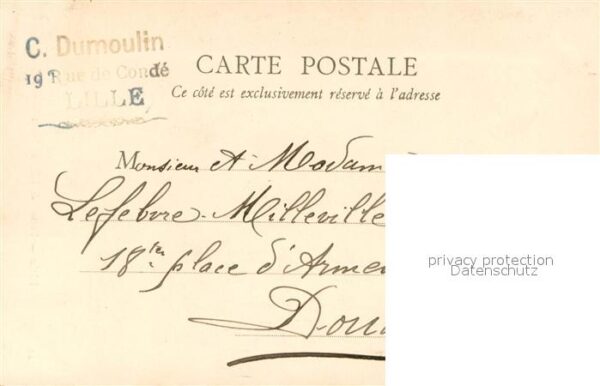 C. Dumoulin
Rue de Condé
LILLE
CARTE POSTALE
Ce côté est exclusivement réservé à l'adresse
Monsieur et Madam
Lefebvre-Milleville
18 ter place d'Arme
Doua
privacy protection
Datenschutz